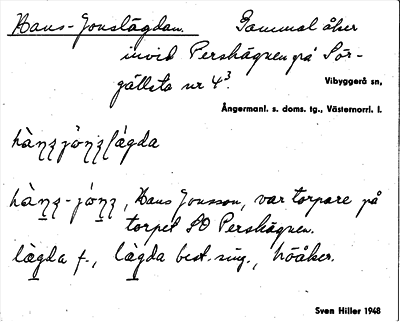 Hans-Jonslägdan. Gammal åker
invid Pershägnen på Sör-
gällsta nr 4³.
Vibyggerå sn,
Ångermanl. s. doms. tg., Västernorrl. l.
Hans Jonsson, var torpare på
torpet SO Pershägnen.
lægda f., lægda best. sing., höåker.
Sven Hiller 1948